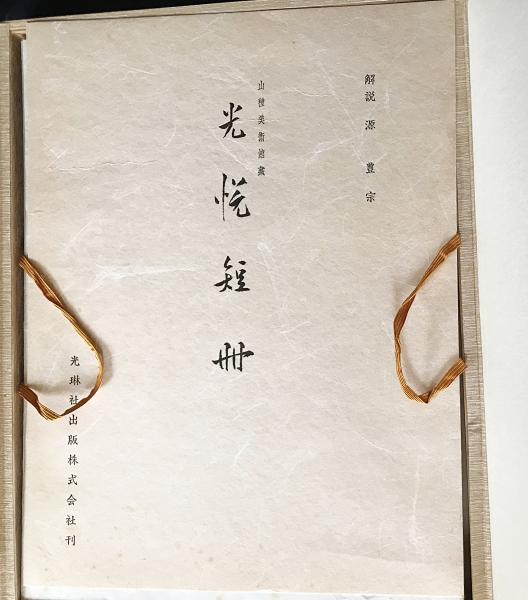 解説 源 豊宗
山種美術館蔵
光悦短冊
光琳社出版株式会社刊